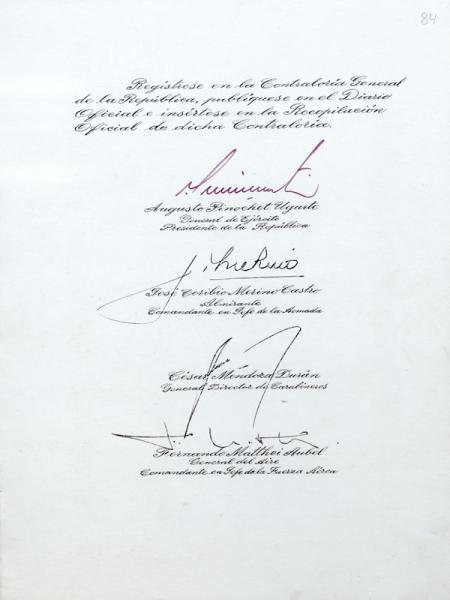 84
Regístrese en la Contraloría General
de la República, publíquese en el Diario
Oficial e insértese en la Recopilación
Oficial de dicha Contraloría.
Augusto Pinochet Ugarte
General de Ejército
Presidente de la República
José Toribio Merino Castro
Almirante
Comandante en Jefe de la Armada
César Mendoza Durán
General Director de Carabineros
Fernando Matthei Aubel
General del Aire
Comandante en Jefe de la Fuerza Aérea